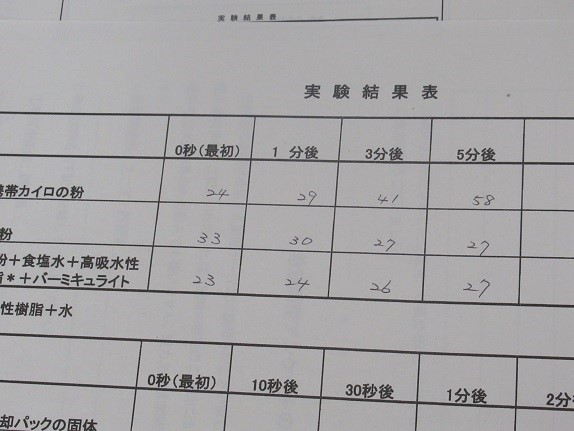 実験結果表
実験結果表
0秒(最初) 1分後 3分後 5分後
携帯カイロの粉 24 29 41 58
粉 33 30 27 27
粉+食塩水+高吸水性
脂*+バーミキュライト 23 24 26 27
性樹脂+水
0秒(最初) 10秒後 30秒後 1分後 2分
却パックの固体